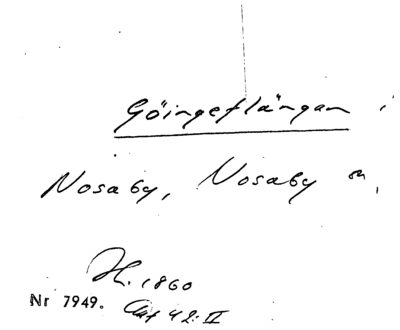 Göingeflängan i
Nosaby, Nosaby sn,
H. 1860
Nr 7949. Akt 42:II